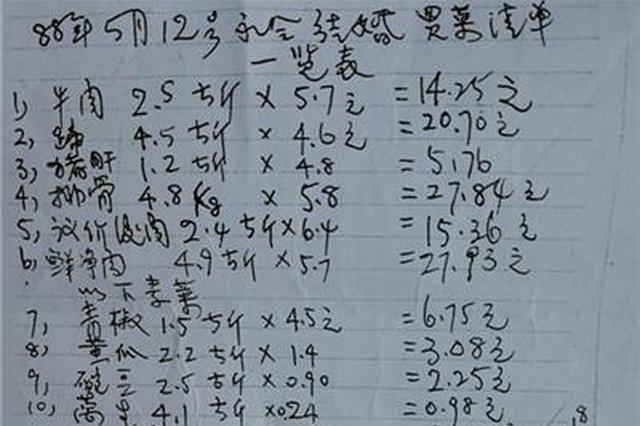 88年5月12号永全结婚买菜清单
一览表
1, 牛肉 2.5 㪷 × 5.7元 = 14.25元
2, 蹄 4.5 㪷 × 4.6元 = 20.70元
3, 猪肝 1.2 㪷 × 4.8 = 5.76
4, 排骨 4.8 Kg × 5.8 = 27.84元
5, 议价 肉 2.4 㪷 × 6.4 = 15.36元
6, 鲜净肉 4.9 㪷 × 5.7 = 27.93元
以下素菜
7, 青椒 1.5 㪷 × 4.5元 = 6.75元
8, 黄瓜 2.2 㪷 × 1.4 = 3.08元
9, 豌豆 2.5 㪷 × 0.90 = 2.25元
10, 莴 4.1 㪷 × 0.24 = 0.98元